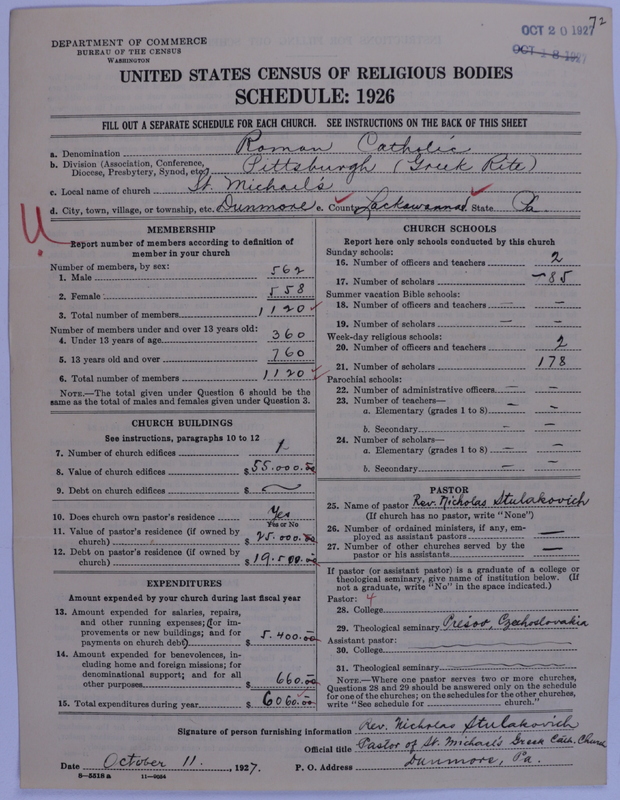 OCT 20 1927 72
OCT 18 1927
DEPARTMENT OF COMMERCE
BUREAU OF THE CENSUS
WASHINGTON
UNITED STATES CENSUS OF RELIGIOUS BODIES
SCHEDULE: 1926
FILL OUT A SEPARATE SCHEDULE FOR EACH CHURCH. SEE INSTRUCTIONS ON THE BACK OF THIS SHEET
a. Denomination Roman Catholic
b. Division (Association, Conference, Diocese, Presbytery, Synod, etc.) Pittsburgh (Greek Rite)
c. Local name of church St. Michael's
d. City, town, village, or township, etc. Dunmore e. County Lackawanna State Pa
U.
MEMBERSHIP
Report number of members according to definition of
member in your church
Number of members, by sex:
1. Male 562
2. Female 558
3. Total number of members 1120
Number of members under and over 13 years old:
4. Under 13 years of age 360
5. 13 years old and over 760
6. Total number of members 1120
NOTE.—The total given under Question 6 should be
same as the total of males and females given under Question 3.
CHURCH BUILDINGS
See instructions, paragraphs 10 to 12
7. Number of church edifices 1
8. Value of church edifices $55.000.00
9. Debt on church edifices $
10. Does church own pastor's residence Yes
Yes or No
11. Value of pastor's residence (if owned by
church) $25.000.00
12. Debt on pastor's residence (if owned by
church) $19.500.00
EXPENDITURES
Amount expended by your church during last fiscal year
13. Amount expended for salaries, repairs,
and other running expenses; (for im-
provements or new buildings; and for
payments on church debt) $5.400.00
14. Amount expended for benevolences, in-
cluding home and foreign missions; for
denominational support; and for all
other purposes $660.00
15. Total expenditures during year $6060.00
CHURCH SCHOOLS
Report here only schools conducted by this church
Sunday schools:
16. Number of officers and teachers 2
17. Number of scholars 85
Summer vacation Bible schools:
18. Number of officers and teachers —
19. Number of scholars —
Week-day religious schools:
20. Number of officers and teachers 2
21. Number of scholars 178
Parochial schools:
22. Number of administrative officers —
23. Number of teachers—
a. Elementary (grades 1 to 8) —
b. Secondary —
24. Number of scholars—
a. Elementary (grades 1 to 8) —
b. Secondary —
PASTOR
25. Name of pastor Rev. Nicholas Stulakovich
(If church has no pastor, write "None")
26. Number of ordained ministers, if any, em-
ployed as assistant pastors —
27. Number of other churches served by the
pastor or his assistants —
If pastor (or assistant pastor) is a graduate of a college or
theological seminary, give name of institution below. (If
not a graduate, write "No" in the space indicated.)
Pastor: 4
28. College
29. Theological seminary Presov, Czechoslovakia
Assistant pastor:
30. College
31. Theological seminary
NOTE.—Where one pastor serves two or more churches,
Questions 28 and 29 should be answered only on the schedule
for one of the churches; on the schedules for the other churches,
write "See schedule for church."
Signature of person furnishing information Rev. Nicholas Stulakovich
Official title Pastor of St. Michael's Greek Cath. Church
Date October 11., 1927. P. O. Address Dunmore, Pa.
8—5518 a 11—9034